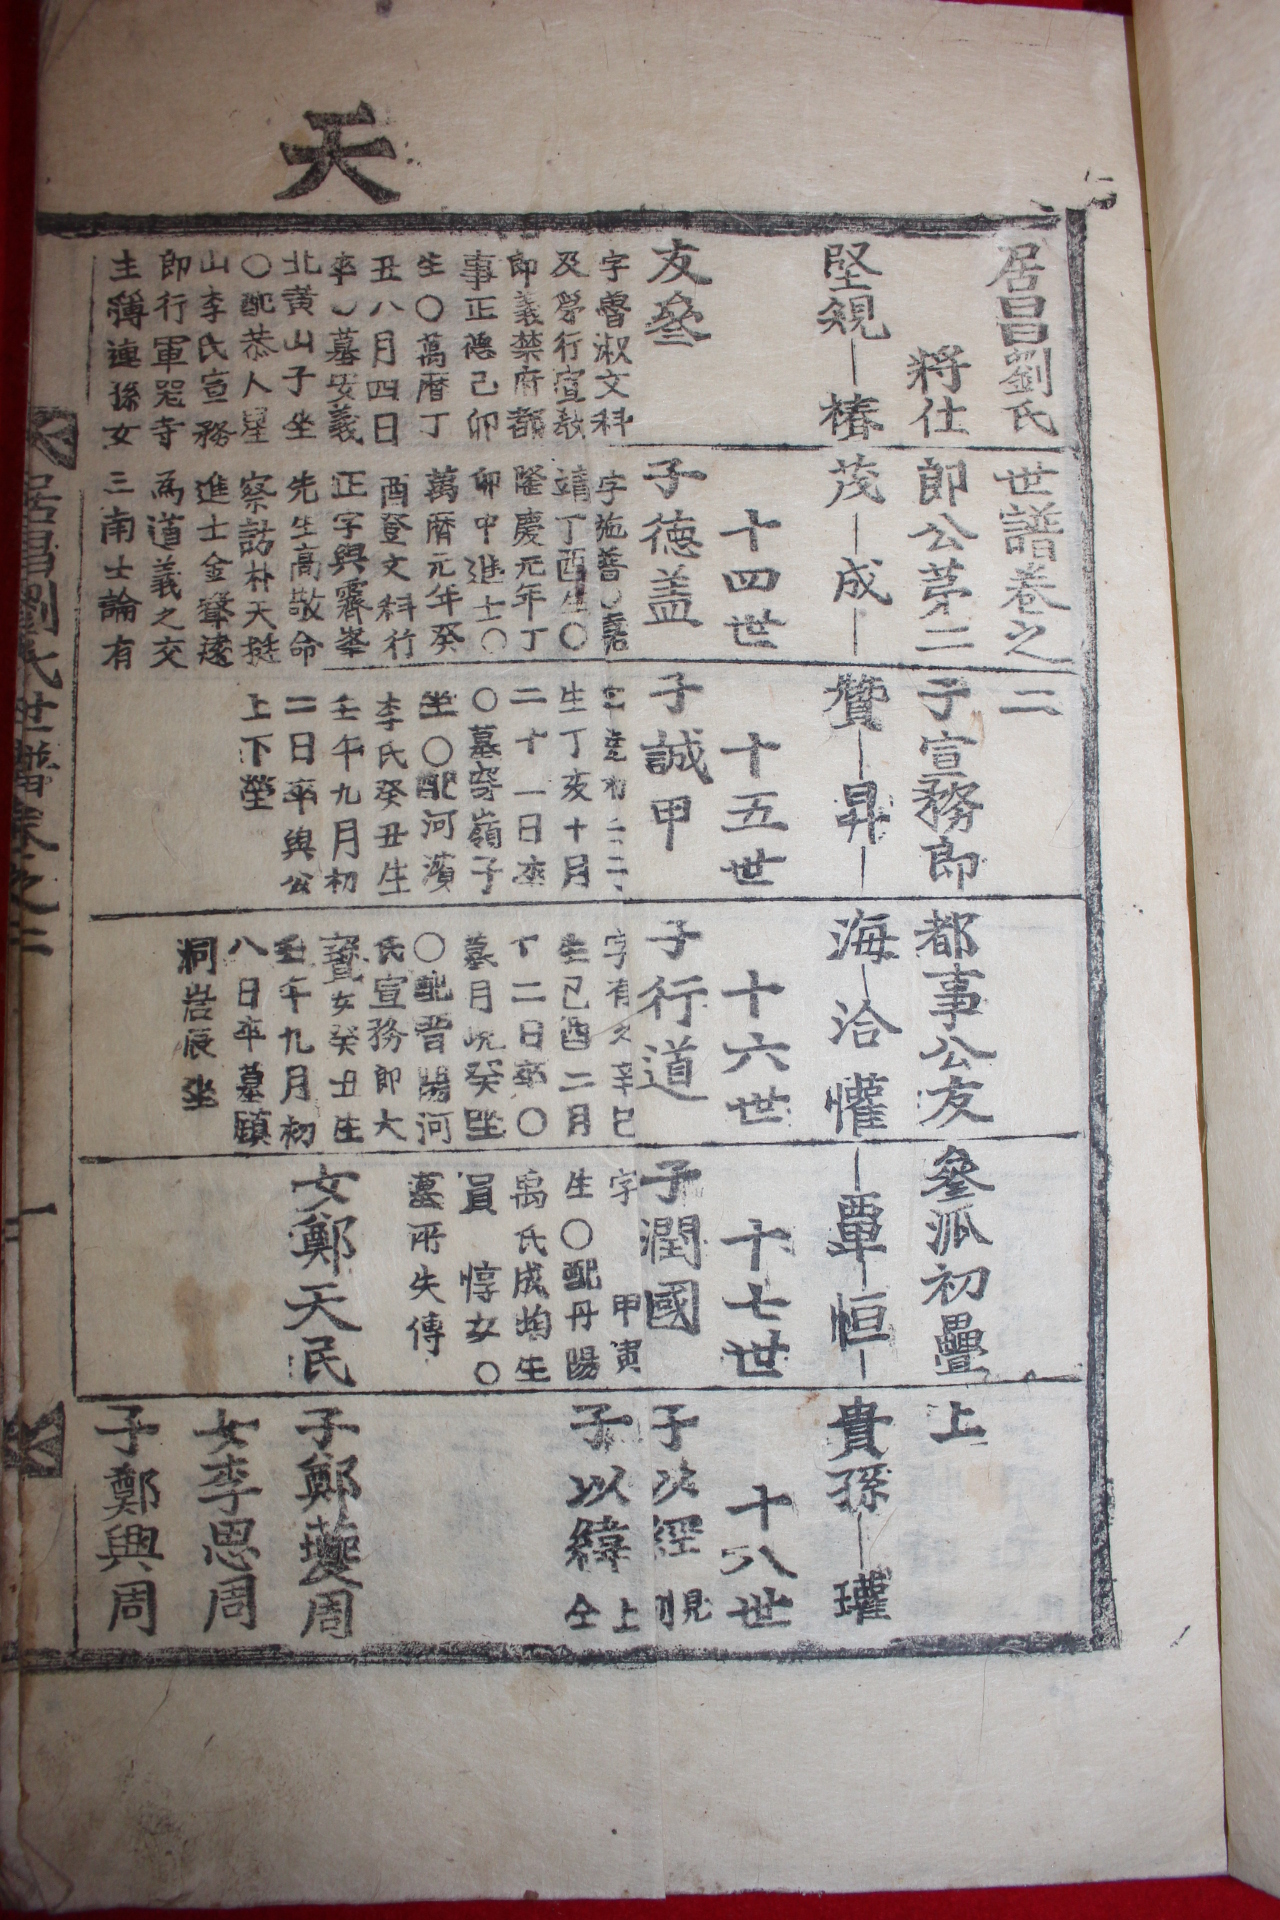 天
居昌劉氏世譜卷之二
將仕郎公苐二子宣務郎都事公友參派初疊上
堅規―椿茂―成―贊―昇―海―洽 懽―覃―恒―貴孫―瓘
十四世
十五世
十六世
十七世
十八世
友參
字魯淑文科
及學行宣敎
郎義禁府都
事正德己卯
生〇萬曆丁
丑八月四日
卒〇墓安義
北黃山子坐
〇配恭人星
山李氏宣務
郎行軍器寺
主簿連孫女
子德盖
字施善〇嘉
靖丁酉生〇
隆慶元年丁
卯中進士〇
萬曆元年癸
酉登文科行
正字與霽峯
先生高敬命
察訪朴天挺
進士金聲遠
爲道義之交
三南士論有
子誠甲
生丁亥十月
二十一日卒
〇墓嶺子
坐〇配河濱
李氏癸丑生
壬午九月初
二日卒與公
上下塋
子行道
字有之辛巳
生己酉二月
丁二日卒〇
墓月峴癸坐
〇配晋陽河
氏宣務郎大
寶女癸丑生
壬午九月初
八日卒墓
洞岩辰坐
子潤國
字 甲寅
生〇配丹陽
禹氏成均生
員 惇女〇
墓所失傳
女鄭天民
子次經 見別
子以緯 仝上
子鄭周
女李思周
子鄭興周
居昌劉氏世譜卷之二 一